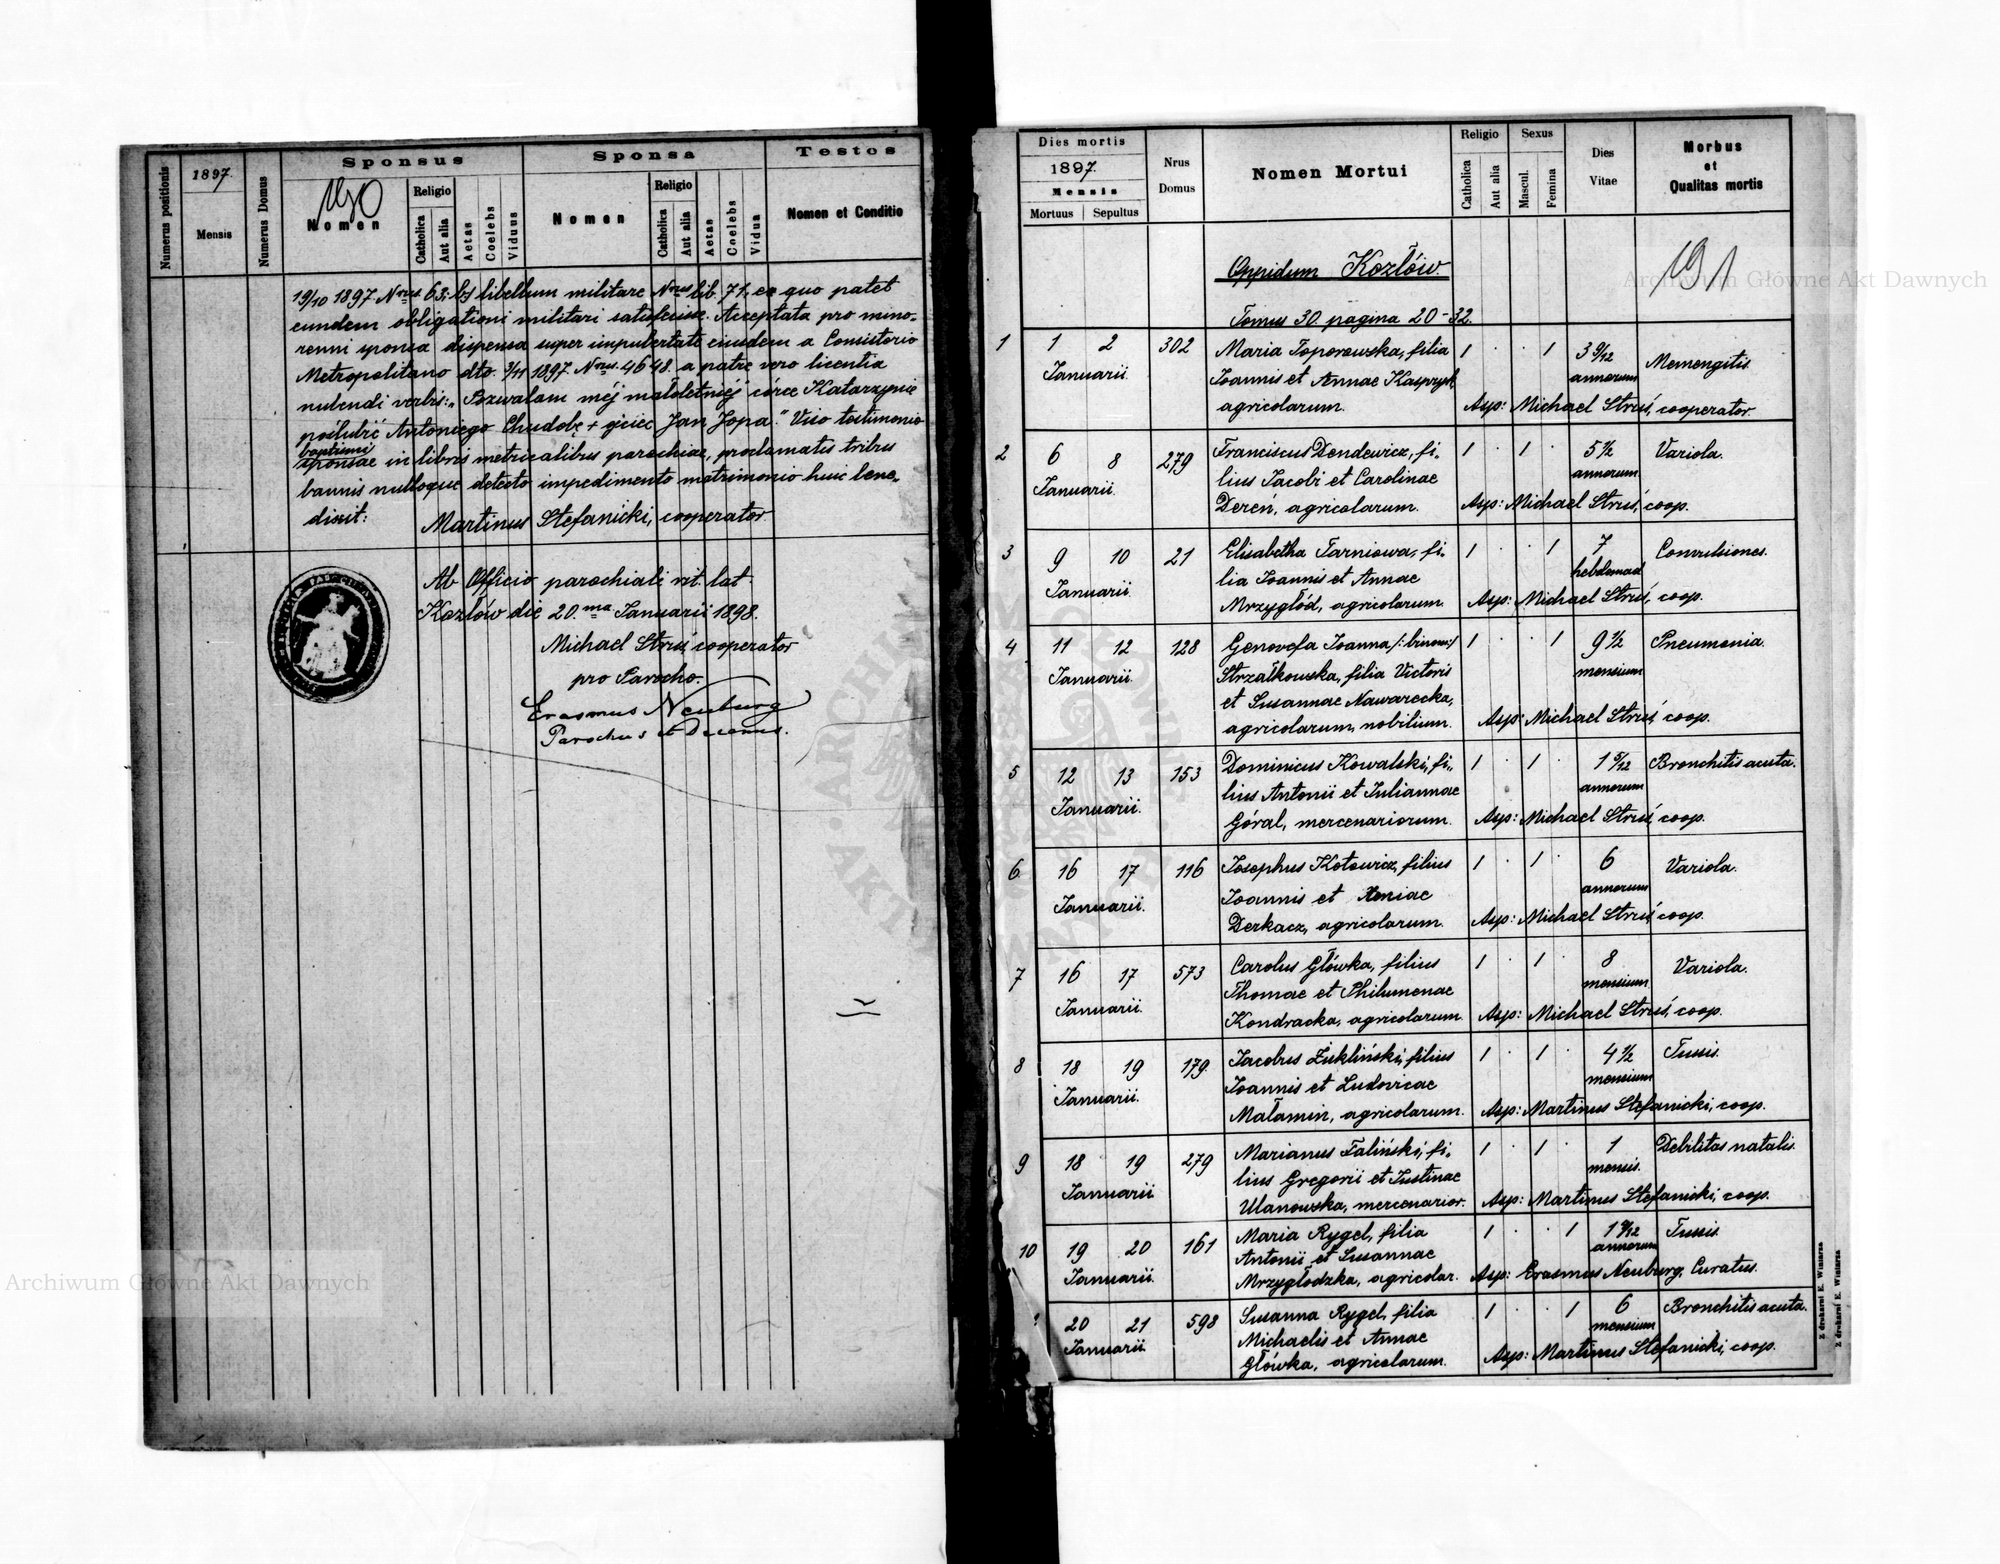 Numerus positionis
1897.
Mensis
Numerus Domus
Sponsus
190
Nomen
Religio
Catholica
Aut alia
Aetas
Coelebs
Viduus
Sponsa
Nomen
Religio
Catholica
Aut alia
Aetas
Coelebs
Vidua
Testes
Nomen et Conditio
19/10 1897 Nrus 63; b) libellum militare Nrus lib. 71. ex quo patet
eundem obligationi militari satisfecisse. Acceptata pro mino-
renni sponsa dispensa super impubertate eiusdem a Consistorio
Metropolitano dto. 9/11 1897. Nrus 4648. a patre vero licentia
nubendi verbis: „Pozwalam méj małoletniéj córce Katarzynie
poślubić Antoniego Chudobę + ojciec Jan Jopa." Viso testimonio
baptismi
sponsae in libris metricalibus parochiae, proclamatis tribus
bannis nulloque detecto impedimento matrimonio huic bene-
dixit:
Martinus Stefanicki, cooperator
Ab Officio parochiali rit. lat.
Kozłów die 20.ma Ianuarii 1898.
Michael Struś, cooperator
pro Parocho.
Erasmus Neuburg
Parochus et Decanus.
Dies mortis
1897.
Mensis
Mortuus
Sepultus
Nrus
Domus
Nomen Mortui
Religio
Catholica
Aut alia
Sexus
Mascul.
Femina
Dies
Vitae
Morbus
et
Qualitas mortis
191
Oppidum Kozłów.
Tomus 30. pagina 20-32.
1 1 2 302 Maria Toporowska, filia 1 . . 1 3 9/12 Memengitis.
Ianuarii. Ioannis et Annae Kasprzyk annorum
agricolarum. Asp: Michael Struś, cooperator
2 6 8 279 Franciscus Dendewicz, fi- 1 . 1 . 5 1/2 Variola.
Ianuarii. lius Iacobi et Carolinae annorum
Dereń, agricolarum. Asp: Michael Struś, coop.
3 9 10 21 Elisabetha Tarniowa, fi- 1 . . 1 7 Convulsiones.
Ianuarii. lia Ioannis et Annae hebdomad
Mrzygłód, agricolarum. Asp: Michael Struś, coop.
4 11 12 128 Genovefa Ioanna /:binom:/ 1 . . 1 9 1/2 Pneumonia.
Ianuarii. Strzałkowska, filia Victoris mensium
et Susannae Nawarecka,
agricolarum, nobilium. Asp: Michael Struś coop.
5 12 13 153 Dominicus Kowalski, fi- 1 . 1 . 1 5/12 Bronchitis acuta.
Ianuarii. lius Antonii et Iuliannae annorum
Góral, mercenariorum. Asp: Michael Struś, coop.
6 16 17 116 Iosephus Kotowicz, filius 1 . 1 . 6 Variola.
Ianuarii. Ioannis et Xeniae annorum
Derkacz, agricolarum. Asp: Michael Struś coop.
7 16 17 573 Carolus Główka, filius 1 . 1 . 8 Variola.
Ianuarii. Thomae et Philumenae mensium
Kondracka, agricolarum. Asp: Michael Struś, coop.
8 18 19 179. Iacobus Żukliński, filius 1 . 1 . 4 1/2 Tussis.
Ianuarii. Ioannis et Ludovicae mensium
Małamin, agricolarum. Asp: Martinus Stefanicki, coop.
9 18 19 279 Marianus Faliński, fi- 1 . 1 . 1 Debilitas natalis.
Ianuarii lius Gregorii et Iustinae mensis.
Ulanowska, mercenarior. Asp: Martinus Stefanicki, coop.
10 19 20 161 Maria Rygel, filia 1 . . 1 1 9/12 Tussis.
Ianuarii. Antonii et Susannae annorum
Mrzygłodzka, agricolar. Asp: Erasmus Neuburg, Curatus.
20 21 598 Susanna Rygel, filia 1 . . 1 6 Bronchitis acuta.
Ianuarii. Michaelis et Annae mensium
Główka, agricolarum. Asp: Martinus Stefanicki, coop.
Z drukarni E. Winiarza
Z drukarni E. Winiarza
Archiwum Główne Akt Dawnych
Archiwum Główne Akt Dawnych